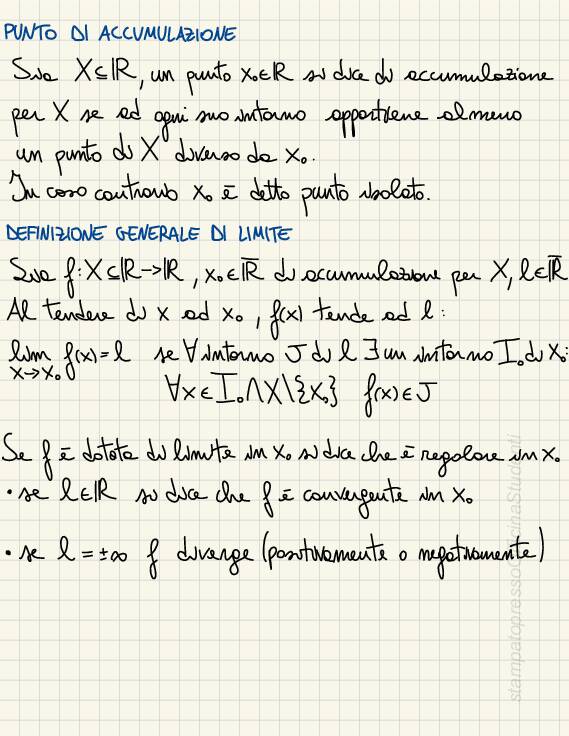 PUNTO DI ACCUMULAZIONE
Sia X⊆ℝ, un punto x₀∈ℝ si dice di accumulazione
per X se ad ogni suo intorno appartiene almeno
un punto di X diverso da x₀.
In caso contrario x₀ è detto punto isolato.
DEFINIZIONE GENERALE DI LIMITE
Sia f: X⊆ℝ→ℝ, x₀∈ℝ̅ di accumulazione per X, l∈ℝ̅
Al tendere di x ad x₀, f(x) tende ad l:
lim f(x)=l se ∀ intorno J di l ∃ un intorno I₀ di x₀:
x→x₀
∀x∈I₀∩X\{x₀} f(x)∈J
Se f è dotata di limite in x₀ si dice che è regolare in x₀
• se l∈ℝ si dice che f è convergente in x₀
• se l=±∞ f diverge (positivamente o negativamente)
stampatopressoOfficinaStudenti